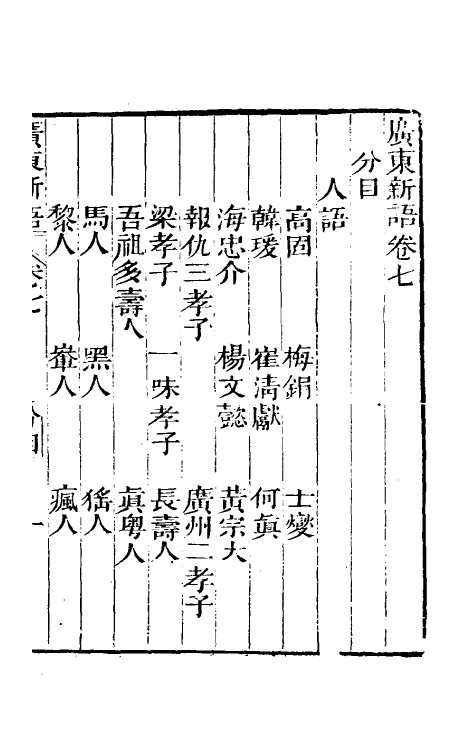 廣東新語卷七
分目
人語
高固　梅鋗　士燮
韓瑗　崔淸獻　何眞
海忠介　楊文懿　黃宗大
報仇三孝子　廣州二孝子
梁孝子　一味孝子　長壽人
吾祖多壽人　眞粵人
馬人　黑人　猺人
黎人　輋人　瘋人
廣東新語　卷七　分目　一